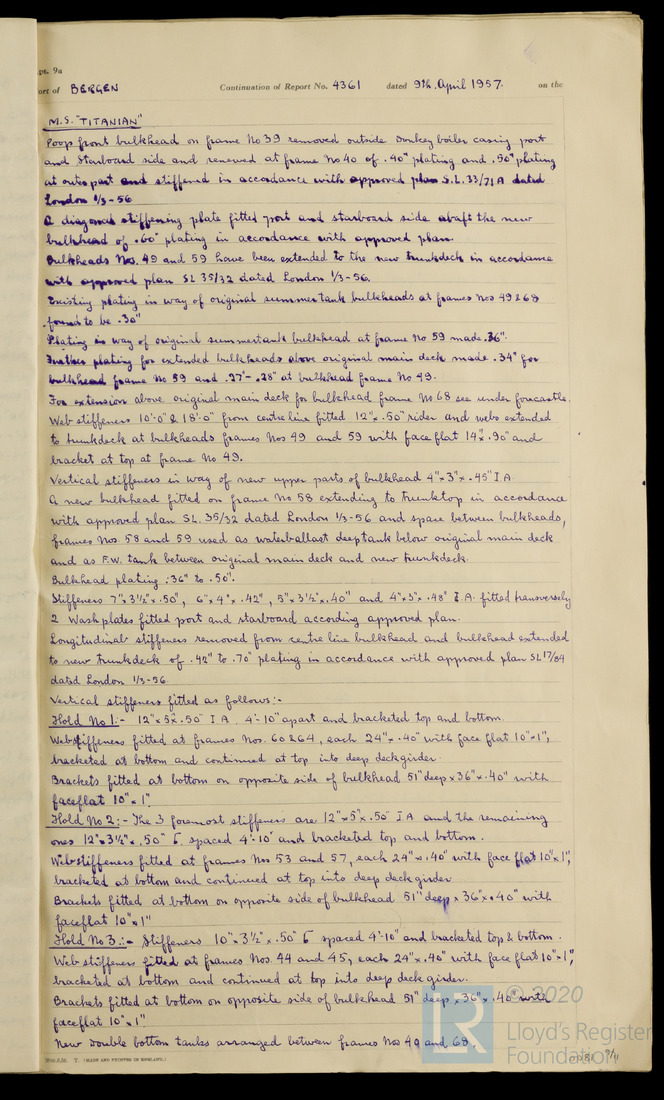 pt. 9a
ort of BERGEN Continuation of Report No. 4361 dated 9th. April 1957. on the
M.S. "TITANIAN"
Poop front bulkhead on frame No 39 removed outside donkey boiler casing port
and starboard side and renewed at frame No 40 of .40" plating and .50" plating
at outer part and stiffened in accordance with approved plan S.L. 33/71A dated
London 1/3-56
A diagonal stiffening plate fitted port and starboard side abaft the new
bulkhead of .60" plating in accordance with approved plan.
Bulkheads Nos. 49 and 59 have been extended to the new trunkdeck in accordance
with approved plan SL 35/32 dated London 1/3-56.
Existing plating in way of original summertank bulkheads at frames Nos 49 & 68
found to be .30"
Plating in way of original summertank bulkhead at frame No 59 made .36".
Further plating for extended bulkheads above original main deck made .34" for
bulkhead frame No 59 and .27"- .28" at bulkhead frame No 49.
For extension above original main deck for bulkhead frame No 68 see under forecastle.
Web stiffeners 10'-0" & 18'-0" from centreline fitted 12" x .50" rider and webs extended
to trunkdeck at bulkheads frames Nos 49 and 59 with face flat 14" x .90" and
bracket at top at frame No 49.
Vertical stiffeners in way of new upper parts of bulkhead 4" x 3" x .45" I.A.
A new bulkhead fitted on frame No 58 extending to trunktop in accordance
with approved plan SL. 35/32 dated London 1/3-56 and space between bulkheads,
frames Nos. 58 and 59 used as waterballast deeptank below original main deck
and as F.W. tank between original main deck and new trunkdeck.
Bulkhead plating .36" to .50".
Stiffeners 7" x 3½" x .50", 6" x 4" x .42", 5" x 3½" x .40" and 4" x 3" x .48" I.A. fitted transversely
2 Wash plates fitted port and starboard according approved plan.
Longitudinal stiffeners removed from centre line bulkhead and bulkhead extended
to new trunkdeck of .42" to .70" plating in accordance with approved plan SL 17/84
dated London 1/3-56
Vertical stiffeners fitted as follows:-
Hold No 1:- 12" x 5" x .50" I A, 4'-10" apart and bracketed top and bottom.
Web stiffeners fitted at frames Nos. 60 & 64, each 24" x .40" with face flat 10" x 1",
bracketed at bottom and continued at top into deep deckgirder.
Brackets fitted at bottom on opposite side of bulkhead 51" deep x 36" x .40" with
faceflat 10" x 1"
Hold No 2:- The 3 foremost stiffeners are 12" x 5" x .50" I A and the remaining
ones 12" x 3½" x .50" spaced 4'-10" and bracketed top and bottom.
Web stiffeners fitted at frames Nos 53 and 57, each 24" x .40" with face flat 10" x 1",
bracketed at bottom and continued at top into deep deckgirder
Brackets fitted at bottom on opposite side of bulkhead 51" deep x 36" x .40" with
faceflat 10" x 1"
Hold No 3:- Stiffeners 10" x 3½" x .50" spaced 4'-10" and bracketed top & bottom.
Web stiffeners fitted at frames Nos. 44 and 45, each 24" x .40" with face flat 10" x 1",
bracketed at bottom and continued at top into deep deck girder.
Brackets fitted at bottom on opposite side of bulkhead 51" deep x 36" x .40" with
faceflat 10" x 1".
New double bottom tanks arranged between frames Nos 49 and 68.
T. (MADE AND PRINTED IN ENGLAND.)
LR © 2020
Lloyd's Register
Foundation